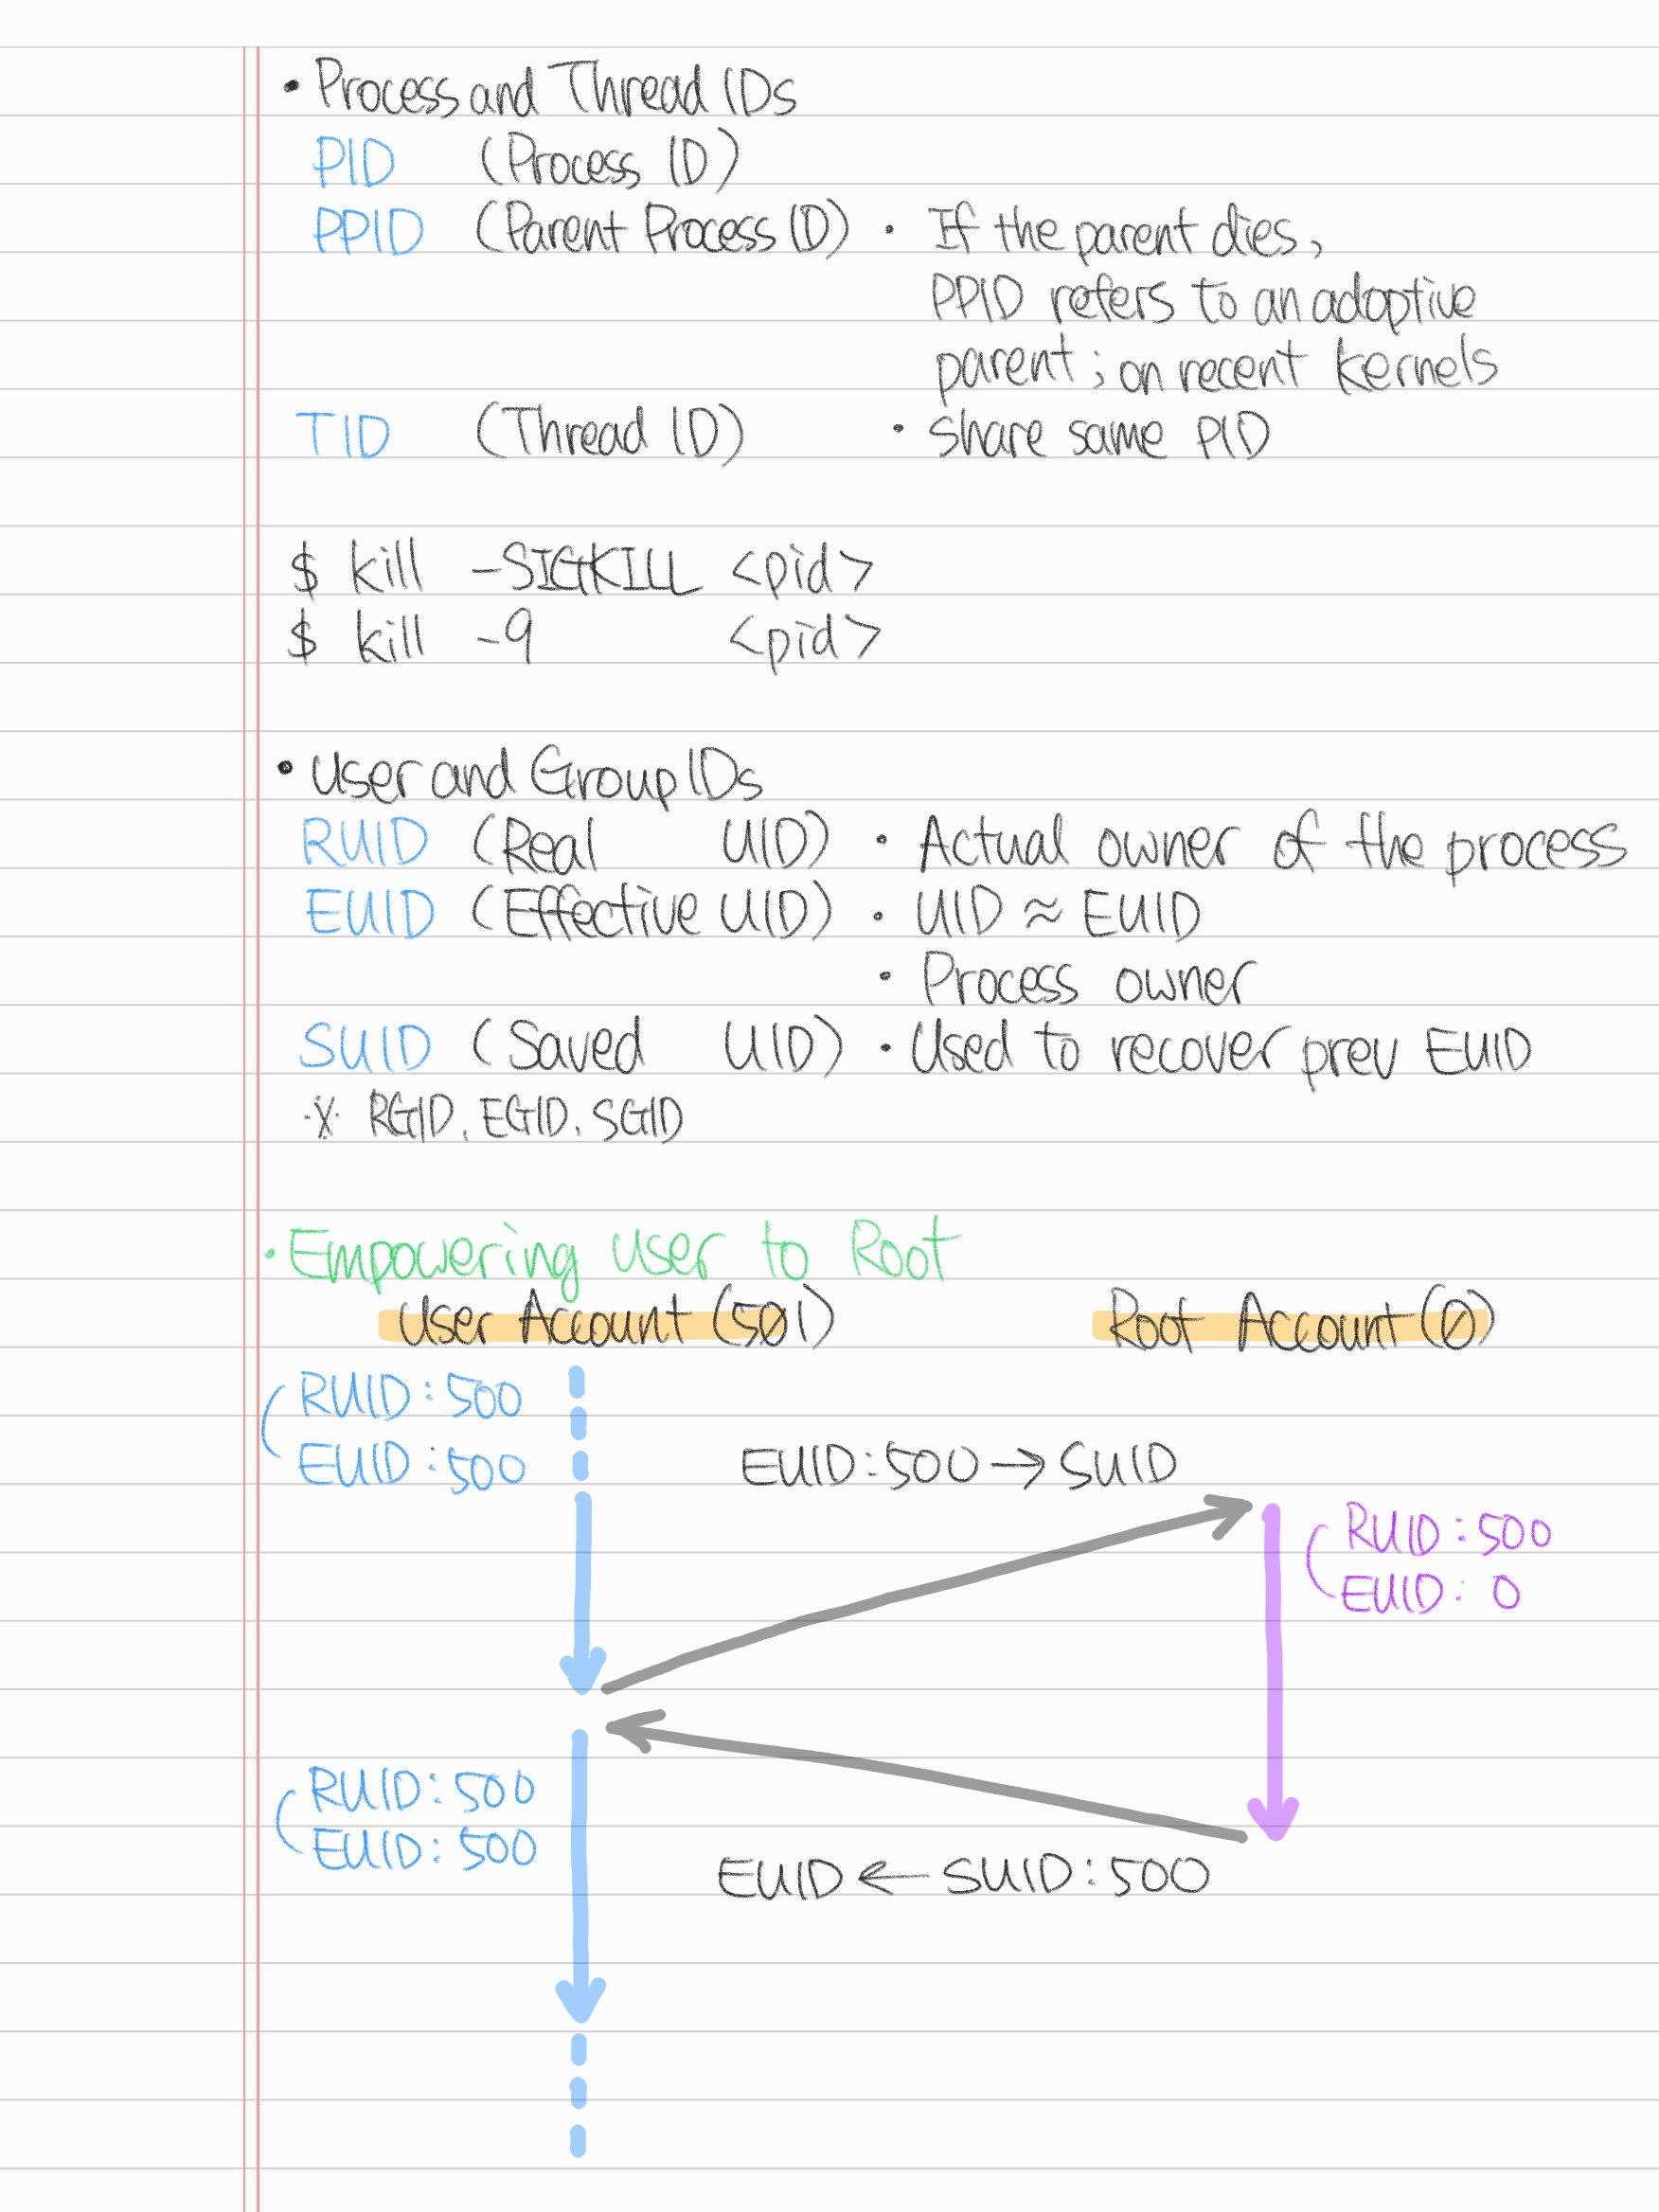 • Process and Thread IDs
PID (Process ID)
PPID (Parent Process ID) • If the parent dies,
PPID refers to an adoptive
parent; on recent kernels
TID (Thread ID) • share same PID
$ kill -SIGKILL <pid>
$ kill -9 <pid>
• User and Group IDs
RUID (Real UID) • Actual owner of the process
EUID (Effective UID) • UID ≈ EUID
• Process owner
SUID (Saved UID) • Used to recover prev EUID
※ RGID, EGID, SGID
• Empowering User to Root
User Account (501) Root Account (0)
RUID: 500
EUID: 500 EUID: 500 → SUID
RUID: 500
EUID: 0
RUID: 500
EUID: 500
EUID ← SUID: 500